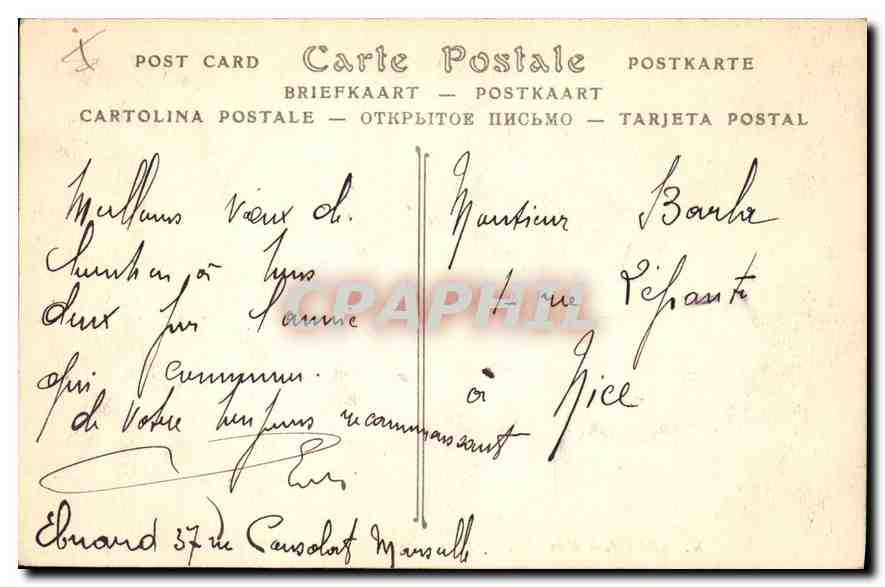 POST CARD Carte Postale POSTKARTE
BRIEFKAART — POSTKAART
CARTOLINA POSTALE — ОТКРЫТОЕ ПИСЬМО — TARJETA POSTAL
Meilleurs Vœux de
bonheur à tous
deux pour l'année
qui commence.
de Votre toujours reconnaissant
37 rue Consolat Marseille.
Monsieur Barla
rue
à Nice
CPAPHIL